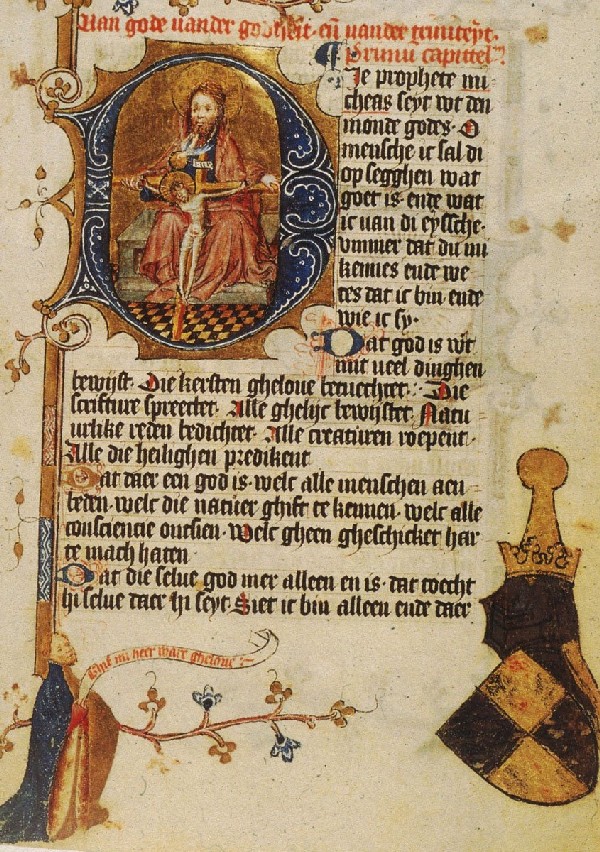 Van gode vander godheit. en vander triniteyt.
Primu capitel.
Die prophete mi
cheas seyt wt den
monde godes. O
mensche ic sal di
op segghen wat
goet is. ende wat
ic van di eyssche.
vmmer dat du mi
kennes ende we
tes dat ic bin ende
wie ic sy.
Dat god is wt
mit ueel dinghen
bewijst. Die kersten gheloue betuechtet. Die
scrifture spreectet. Alle ghelijc bewijstet. Natu
urlike reden bedichtet. Alle creaturen roepent.
Alle die heilighen predikent
Dat daer een god is. welc alle menschen aen
beden. welc die natuer ghift te kennen. welc alle
consciencie ontsien. welc gheen gheschicket har
te mach haten.
Dat die selue god mer alleen en is. dat toecht
hi selue daer hi seyt. Siet ic bin alleen ende daer
mi heer ware gheloue